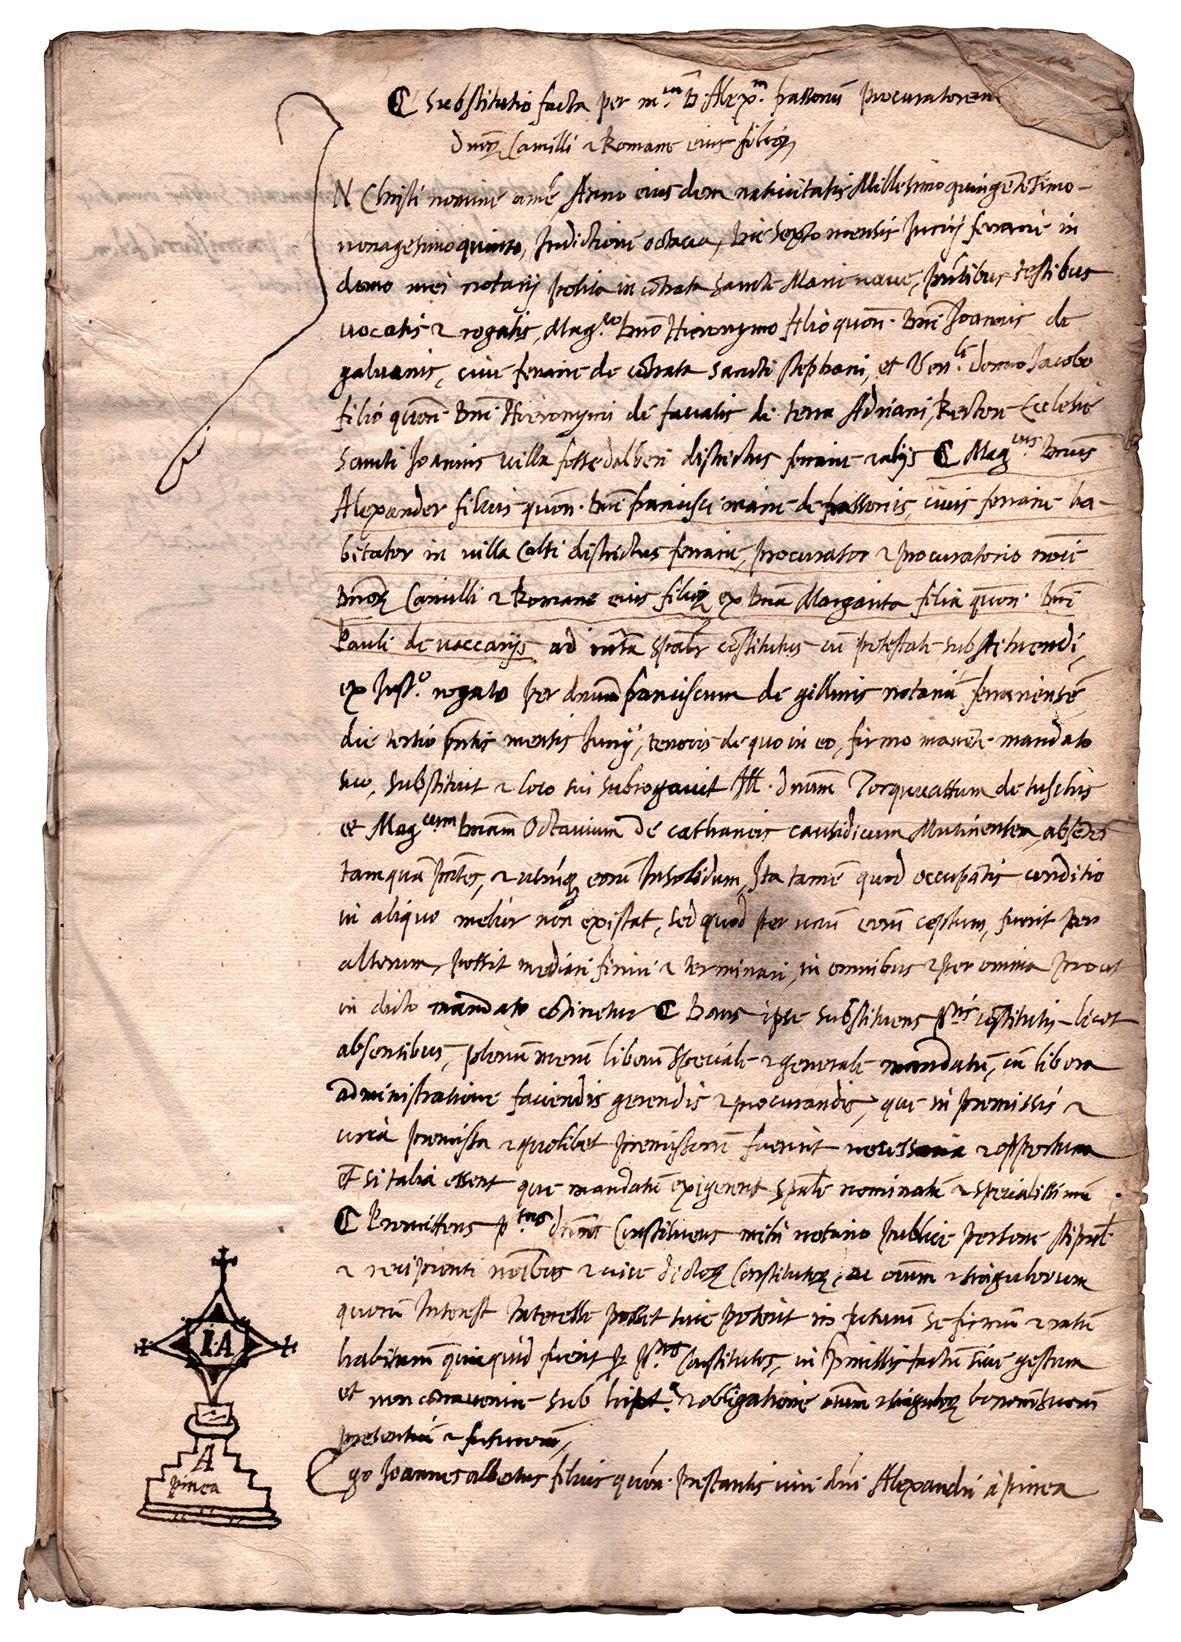 Substitutio facta per m.um D. Alex.m frassonum procuratorem
Dnor Camilli & Romane eius filior
N Christi nomine ame, Anno eiusdem nativitatis Millesimo quingentesimo
nonagesimo quinto, Indictione octava, Die sexto mensis Junij ferrarie in
domo mei notarij posita in contrata Sancte Marie nave, pntibus testibus
vocatis & rogatis, Mag.co Dno Hieronymo filio quon. Dni Joannis de
galvanis, cive ferrarie de contrata Sancti Stephani, et Ven.le domo Jacobo
filio quon. Dni Hieronymi de favalis de terra Adriani, Rectore Ecclesie
Sancti Joannis villa fosse dalberi districtus ferrarie & alijs Mag.cus Dnus
Alexander filius quon. Dni francisci marie de frassonis, civis ferrarie ha-
bitator in villa Colti districtus ferrarie, procurator & procuratorio noie
Dnor Camilli & Romane eius filior ex Dna Margarita filia quon. Dni
Pauli de vaccarijs ad infra spaliter constitutus cu potestate substituendi,
ex Inst.o rogato per dnum franciscum de gillinis notariu ferrariensem
die tertio pntis mensis Junij, tenoris de quo in eo, firmo manente mandato
suo, substituit & loco sui subrogavit Ill. Dnum Torquattum de tuschis
et Mag.cum Dnum Octavium de cathaneis causidicum Mutinensem, absentes
tamqua pntes, & utrunq eoru Insolidum, Ita tame quod occupantis conditio
in aliquo melior non existat, sed quod per unu eoru ceptum fuerit per
alterum, possit mediari finiri & terminari, in omnibus & per omnia prout
in dicto mandato continetur Dans ipse substituens p.tis constitutis licet
absentibus, plenum meru liberu speciale & generale mandatu, cu libera
administratione faciendis gerendis & procurandis, que in premissis &
circa premissa & quolibet premissoru fuerint necessaria & opportuna
et si talia essent que mandatu exigerent spale nominatu & specialissimu
Promittens p.tus dnus Constituens mihi notario publice persone stipul
& recipienti noibus & vice dictor Constitutor, ac oium & singulorum
quoru Interest Interesse posset sive poterit in futuru se firmu & ratu
habiturum quicquid fuerit p p.tos Constitutos, in pmissis factu sive gestum
et non contravenire sub hipot.a & obligatione oium & singulor bonoru suoru
presentiu & futuroru,
Ego Joannes albertus filius quon. prestantis viri dni Alexandri à pinea
I·A
A
pinea